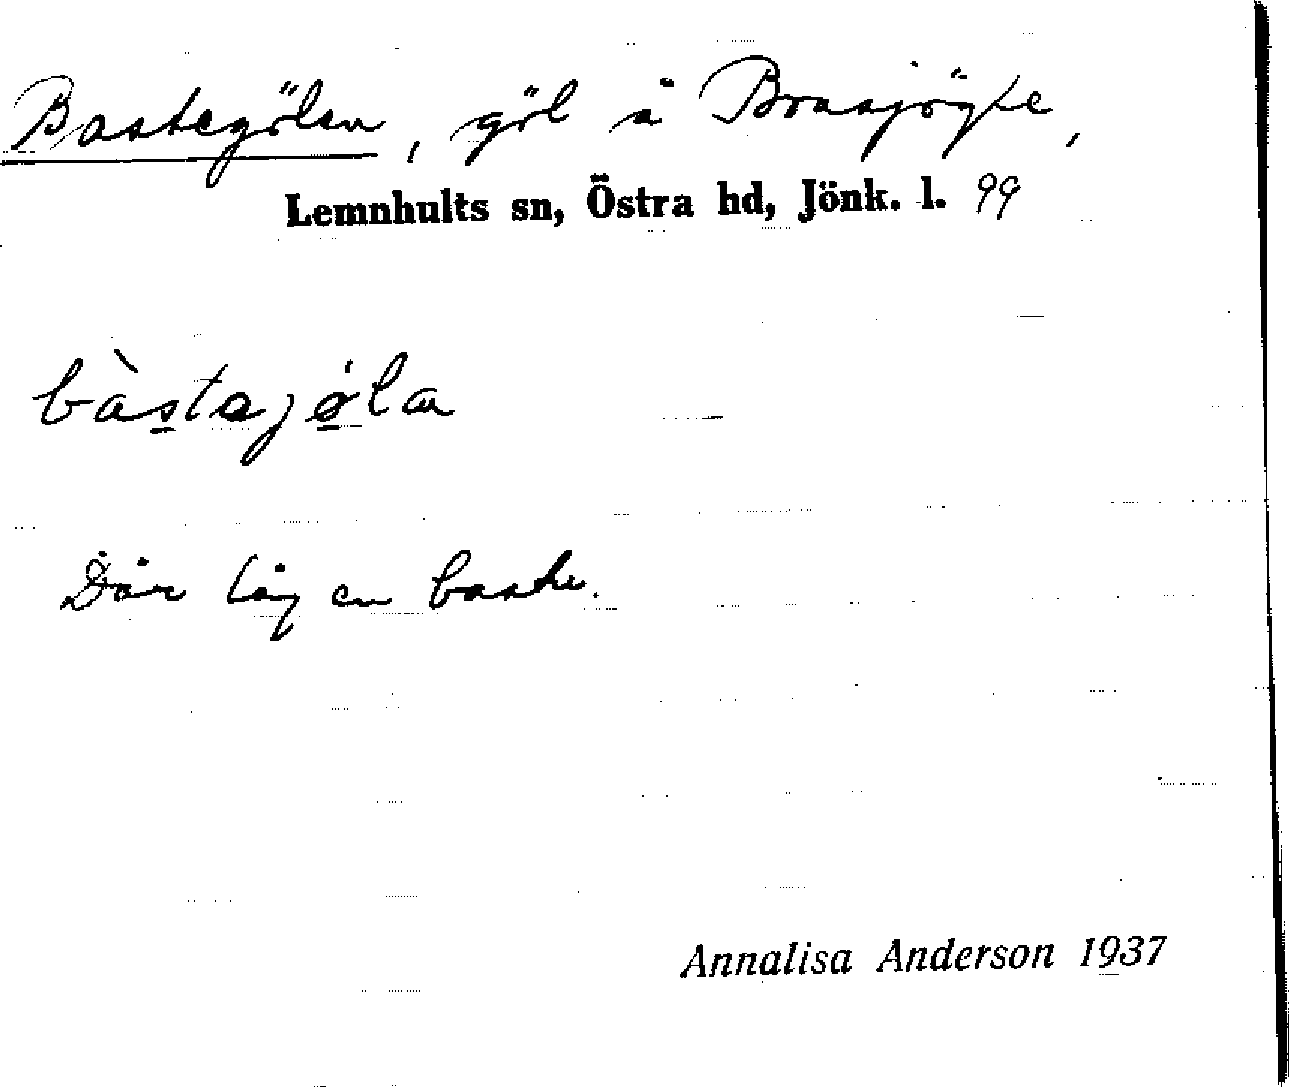 Bastegölen, göl å Bonasjögle,
Lemnhults sn, Östra hd, Jönk. l. 99
bàstajǿlan
Där låg en baste.
Annalisa Anderson 1937